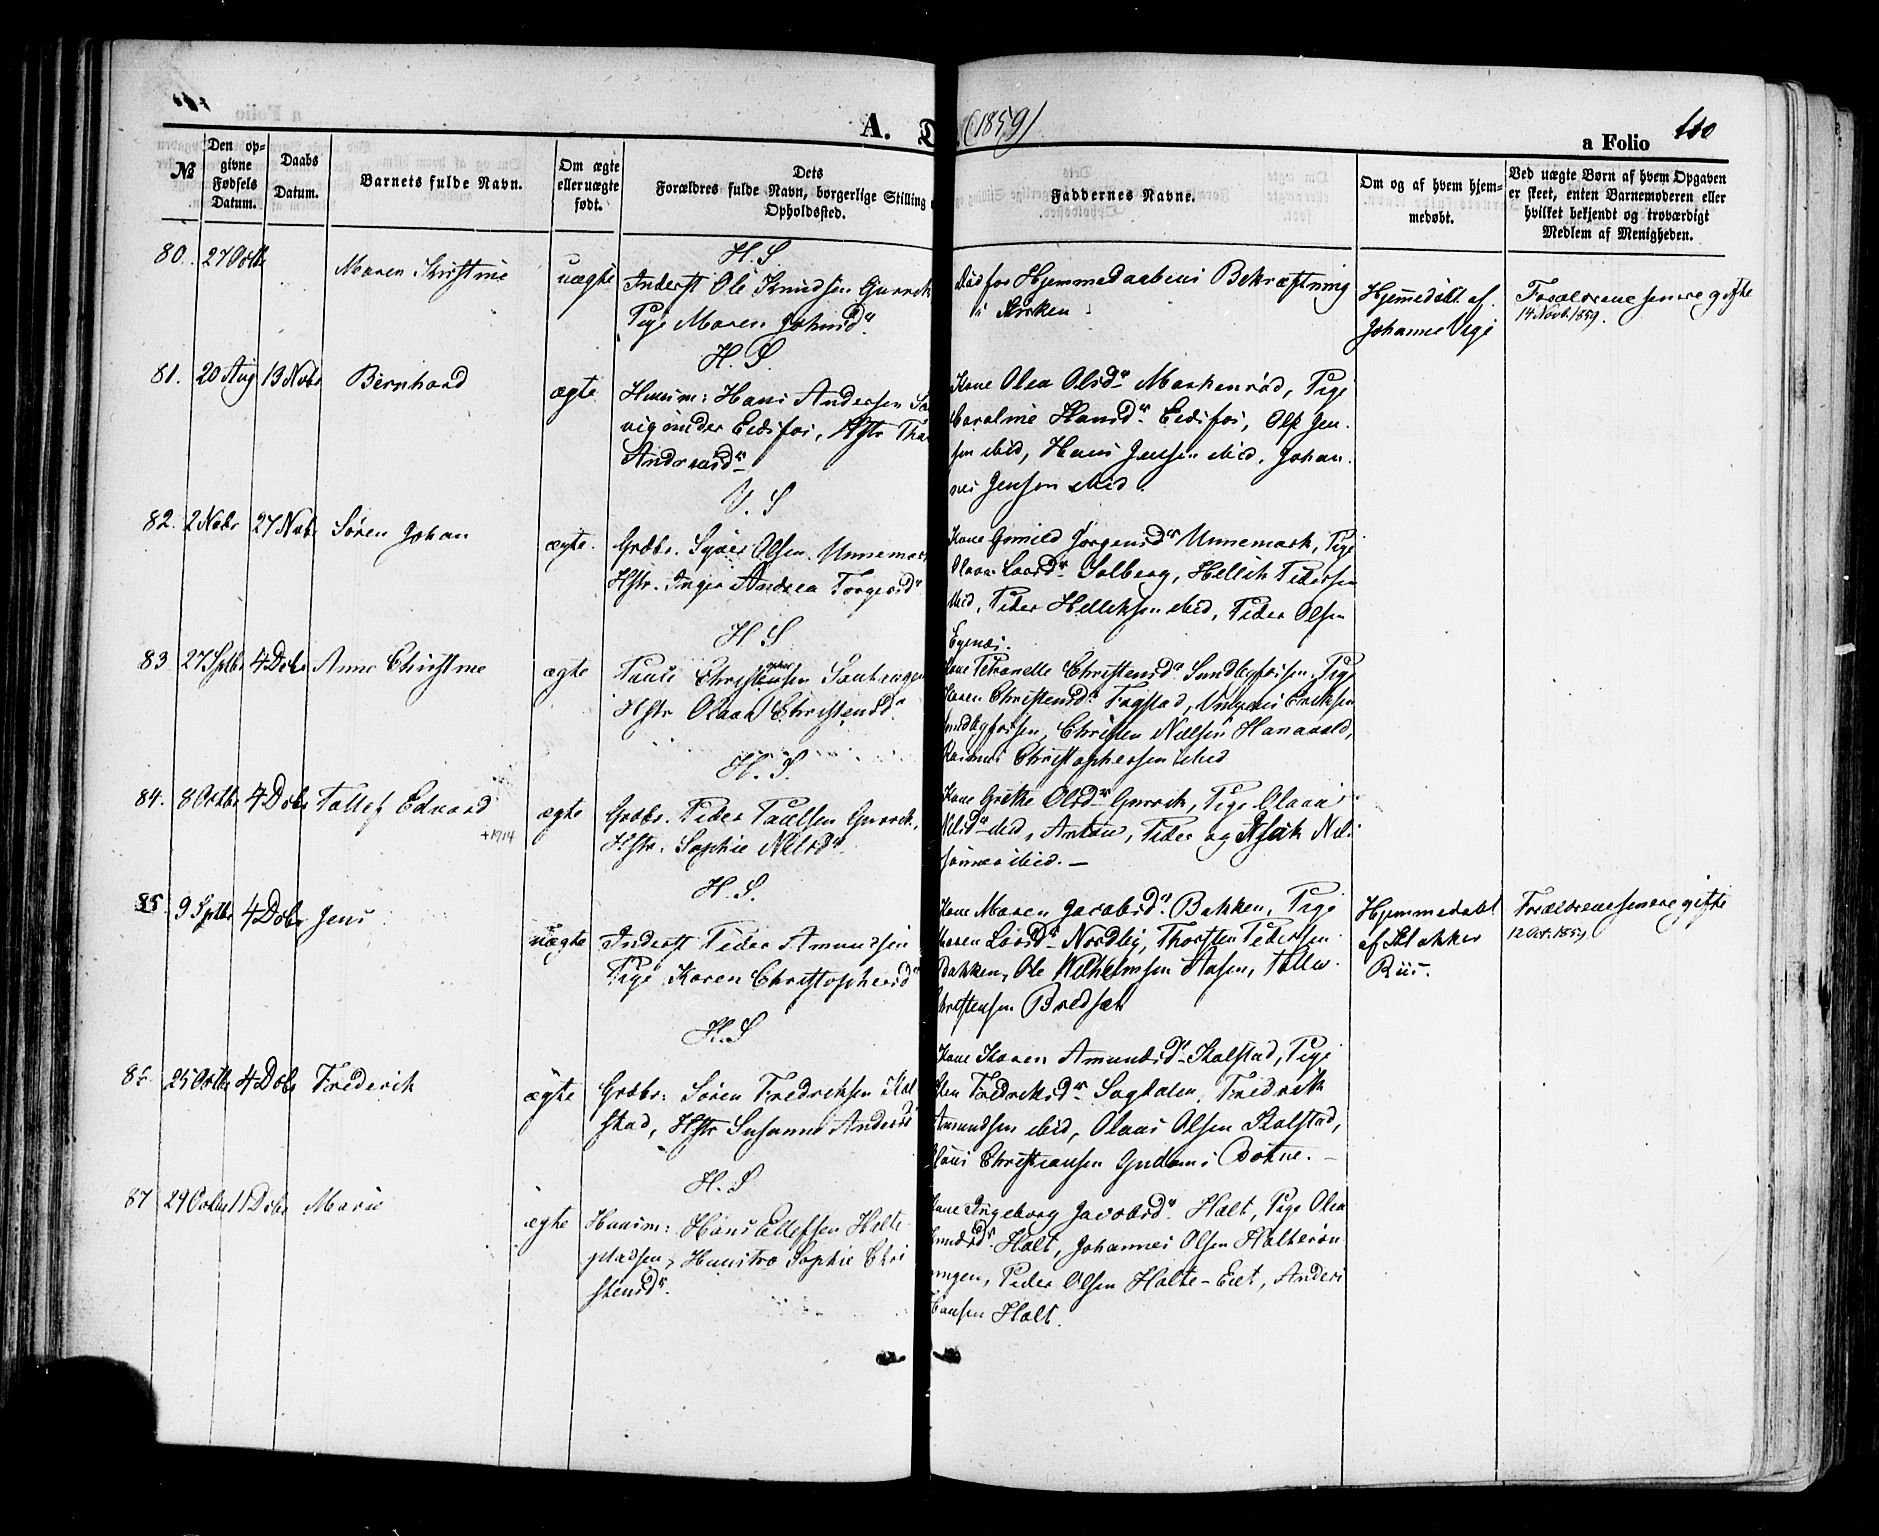 A. D. (1859)
a Folio 110
№
Den op-
givne
Fødsels
Datum.
Daabs
Datum.
Barnets fulde Navn.
Om ægte
eller uægte
født.
Dets
Forældres fulde Navn, borgerlige Stilling
Opholdssted.
Faddernes Navne.
Om og af hvem hjem-
medøbt.
Ved uægte Børn af hvem Opgaven
er skeet, enten Barnemoderen eller
hvilket bekjendt og troværdigt
Medlem af Menigheden.
H. S
80. 27 Octbr Maren Kirstine uægte
Inderst Ole Knudsen Gurrek
Pige Maren Johnsd.
Død før Hjemmedaabens Bekræftning
i Kirken
Hjemmedøbt af
Johanne Vegi
Forældrene senere gifte
14 Novb. 1859.
H. S.
81. 20 Aug 13 Novbr Bernhard ægte
Huusm: Hans Andersen
vig under Eidsfos, Hstr
Andreasd.
Kone Olea Olsd. Markenrød, Pige
Caroline Hansd. Eidsfos, Ole Jen-
sen ibid, Hans Jensen ibid, Johan-
nes Jensen ibid.
V. S
82. 2 Novbr 27 Novbr Søren Johan ægte.
Grdbr. Syver Olsen Unnemark
Hstr. Inger Andrea Torgersd.
Kone Gunild Jørgensd. Unnemark, Pige
Olava Larsd. Solberg, Hellik Pedersen
ibid, Peder Helliksen ibid, Peder Olsen
Egenæs.
H. S
83 27 Sptbr 4 Dcbr Anne Christine ægte
Paul Christensen
Hstr Olava Christensd.
Kone Petronelle Christensd. Sundbyfossen, Pige
Karen Christensd. Fogstad, Eriksen
Sundbyfossen, Christen Nielsen Hanavold,
Rasmus Christophersen ibid
H. S.
84. 8 Octbr 4 Dcbr Tollef Edvard ægte
+1914
Grdbr. Peder Paulsen Gurrek,
Hstr. Sophie Nilsd.
Kone Grethe Olsd. Gurrik, Pige Olava
Nilsd. ibid, Anton, Peder og Nils
sønner ibid. —
H. S.
85. 9 Sptbr 4 Dcbr Jens uægte
Inderst Peder Amundsen
Pige Karen Christophersd.
Kone Maren Jacobsd. Bakken, Pige
Karen Larsd. Nordby, Thorsten Pedersen
Bakken, Ole Wilhelmsen Aasen, Tollev
Christensen Bredsæt
Hjemmedøbt
af Klokker
Riis.
Forældrene senere gifte
12 Oct. 1859
H. S
86. 25 Octbr 4 Dcbr Frederik ægte
Grdbr: Søren Fredriksen Kol-
stad, Hstr Susanne Andersd.
Kone Karen Amundsd. Kolstad, Pige
Fredriksd. Sagdalen, Fredrik
Amundsen ibid, Olaus Olsen Kolstad,
Christiansen i Botne. —
H. S
87 29 Octbr 11 Dcbr Marie ægte
Huusm: Hans Ellefsen Holte-
pladsen, Huustro Sophie Chri-
stensd.
Kone Ingeborg Jacobsd. Holt, Pige Olea
Knudsd. Holt, Johannes Olsen Holterøn-
ningen, Peder Olsen Holte-Eiet, Anders
Hansen Holt.